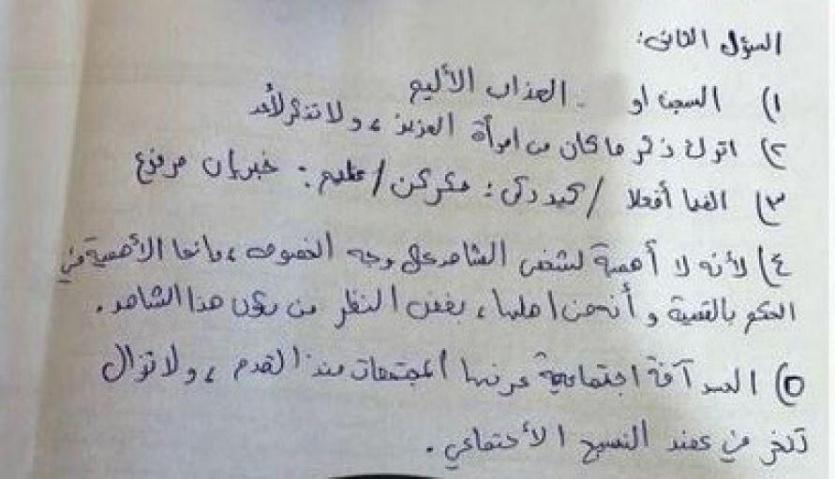 السؤال الثاني:
١) السجن او .. العذاب الأليم
٢) اترك ذكر ما كان من امرأة العزيز ، ولا تذكر لأحد
٣) الفيا أفعلا / كيدكن : مكركن / عظيم : خبر إن مرفوع
٤) لأنه لا أهمية لشخص الشاهد على وجه الخصوص ، وانما الأهمية في
الحكم بالقضية و أنه من اهلها ، بغض النظر من يكون هذا الشاهد .
٥) الحسد آفة اجتماعية عرفها المجتمعات منذ القدم ، ولا تزال
تنخر في عضد النسيج الأجتماعي .